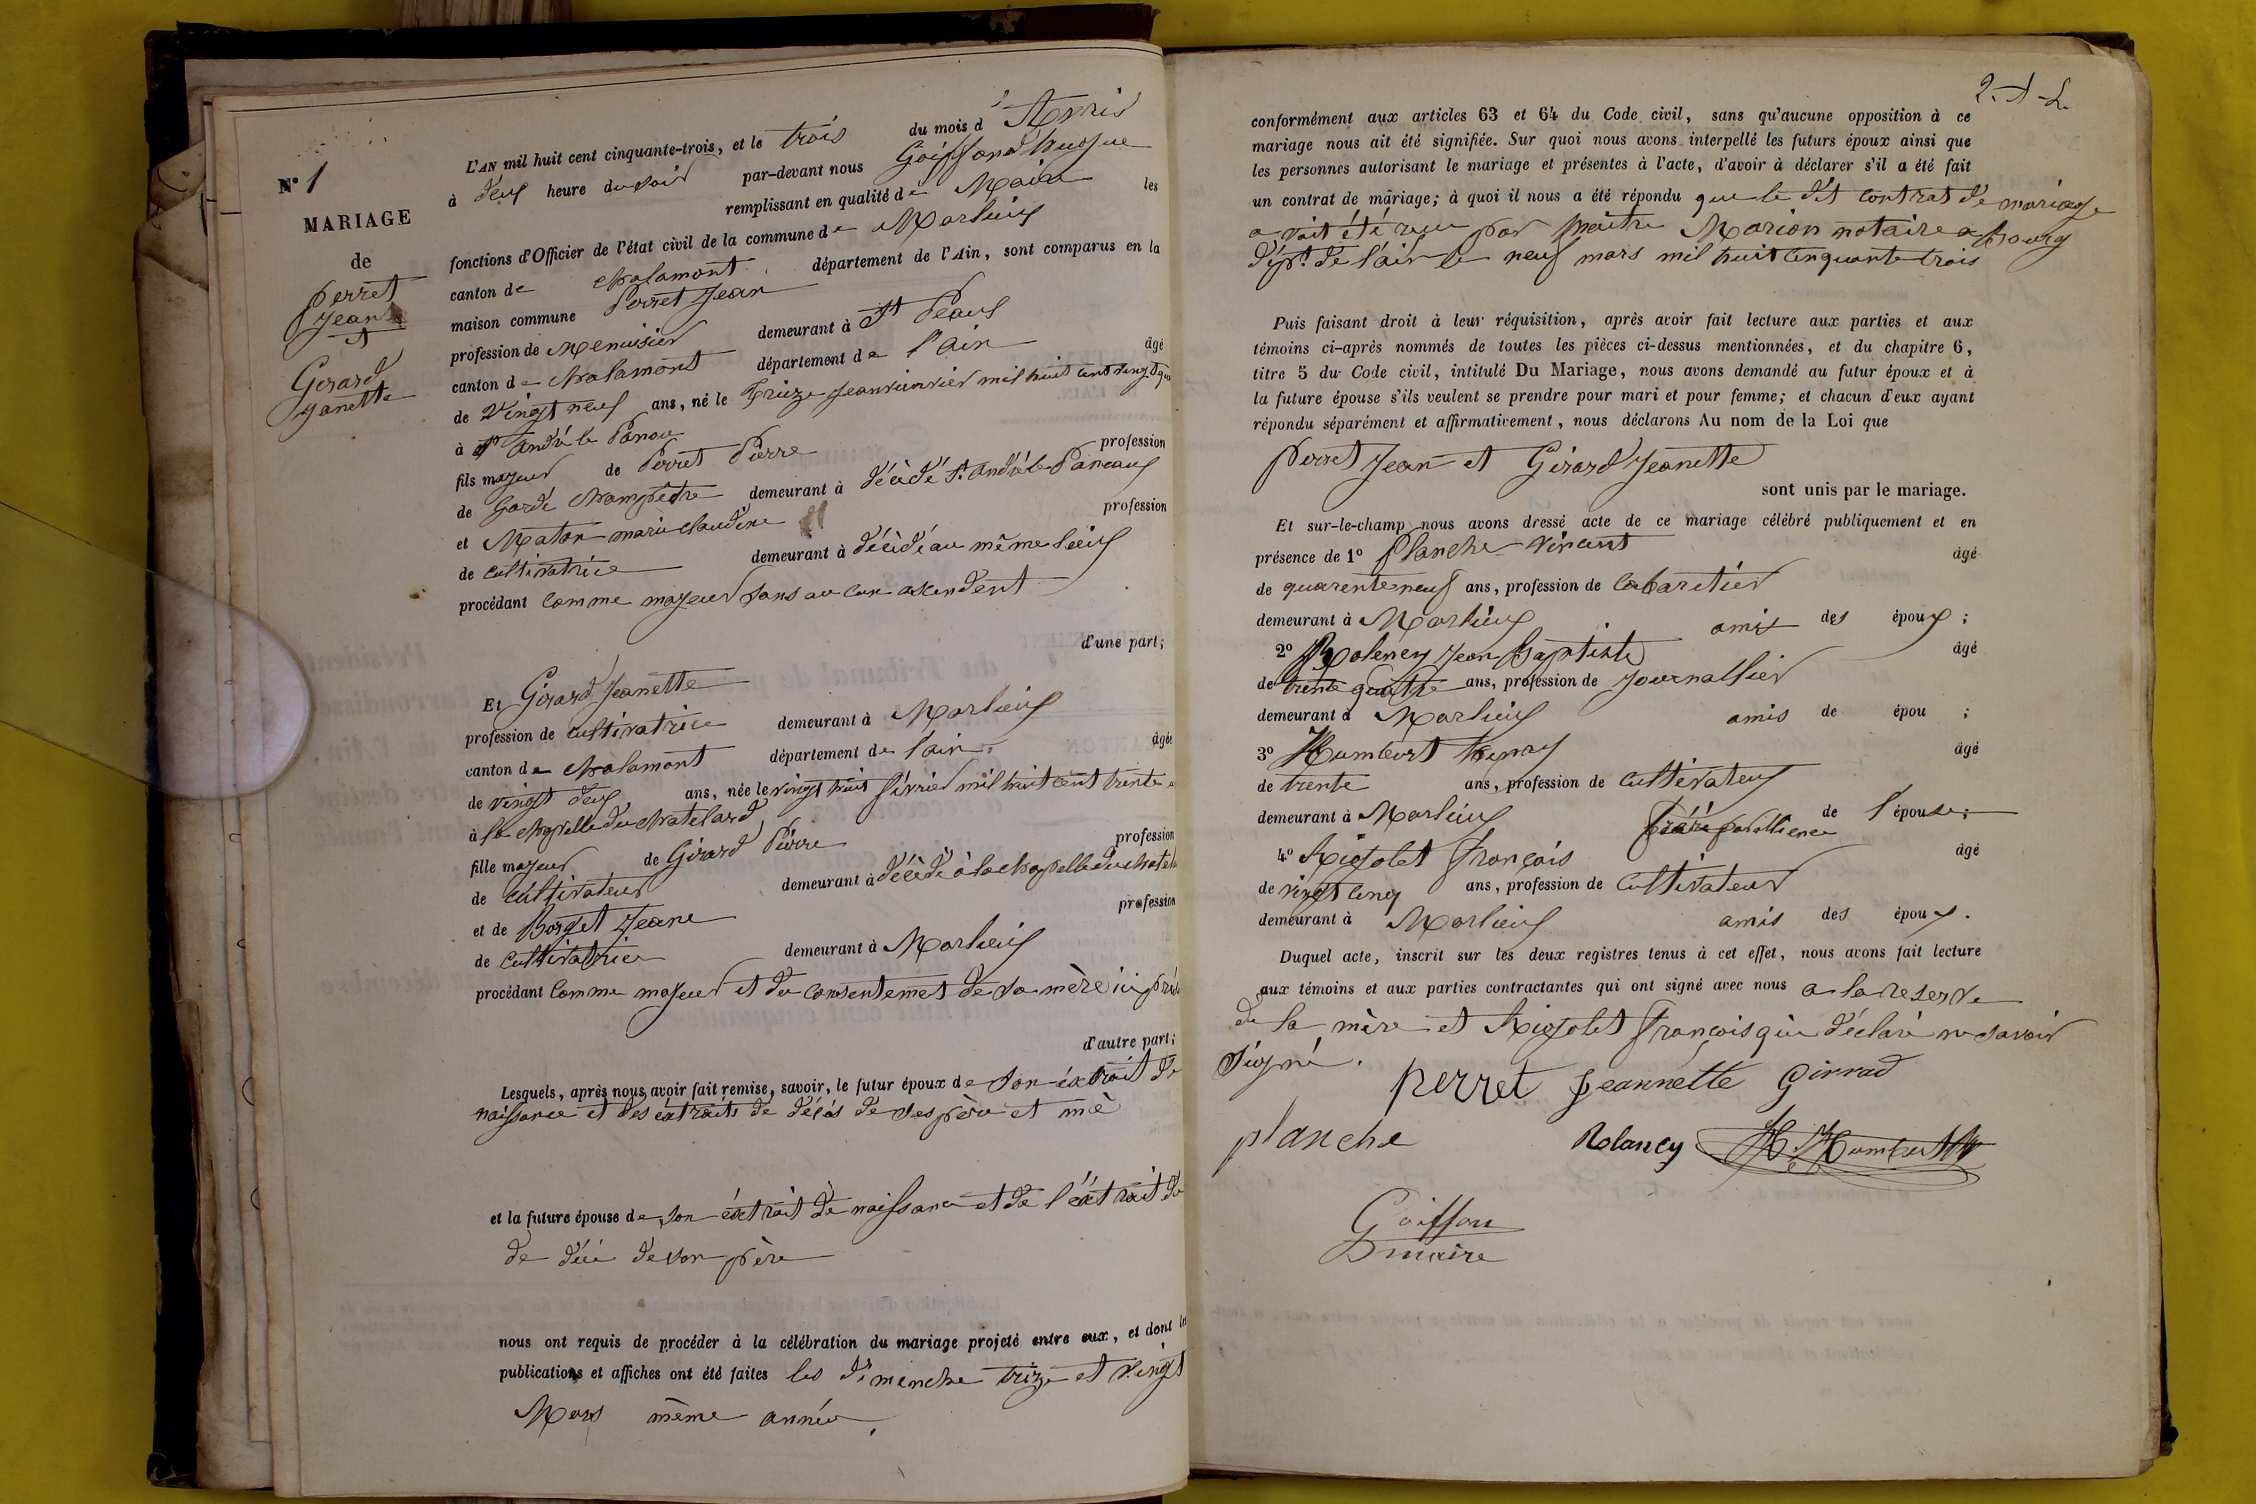 N° 1
MARIAGE
de
Perret
Jean
et
Gerard
Janette
L'AN mil huit cent cinquante-trois, et le trois du mois d'Avril
à deux heure du soir par-devant nous Goiffond
remplissant en qualité de Maire les
fonctions d'Officier de l'état civil de la commune de Marlieux
canton de Chalamont département de l'Ain, sont comparus en la
maison commune Perret Jean
profession de Menuisier demeurant à St
canton de Chalamont département de l'ain âgé
de Vingt neuf ans, né le Treize mil huit cent vingt
à St André le Panou
fils majeur de Perret Pierre profession
de Garde Champêtre demeurant à décédé St André le Paneaux
et Maton marie claudine profession
de cultivatrice demeurant à décédé au même lieux
procédant comme majeur sans au cun ascendent
d'une part;
Et Girard Jeanette
profession de cultivatrice demeurant à Marlieux
canton de Chalamont département de l'ain âgée
de vingt deux ans, née le vingt huit février mil huit cent trente
à la Chapelle du Chatelard
fille majeur de Girard Pierre profession
de cultivateur demeurant à décédé à la chapelle du
et de Borget Jeane profession
de cultivatrice demeurant à Marlieux
procédant comme majeur et du consentemet de sa mère ici
d'autre part;
Lesquels, après nous avoir fait remise, savoir, le futur époux de son extrait de
naissance et des extraits de décés de ses père et mè
et la future épouse de son extrait de naissance et de l'extrait de
de déci de son père
nous ont requis de procéder à la célébration du mariage projeté entre eux, et dont les
publications et affiches ont été faites les dimenche trize et vingt
Mars même année.
conformément aux articles 63 et 64 du Code civil, sans qu'aucune opposition à ce
mariage nous ait été signifiée. Sur quoi nous avons interpellé les futurs époux ainsi que
les personnes autorisant le mariage et présentes à l'acte, d'avoir à déclarer s'il a été fait
un contrat de mariage; à quoi il nous a été répondu que le dit contrat de mariage
a vait été reçu par Maître Marion notaire a bourg
dépt. de l'ain le neuf mars mil huit cinquante trois
Puis faisant droit à leur réquisition, après avoir fait lecture aux parties et aux
témoins ci-après nommés de toutes les pièces ci-dessus mentionnées, et du chapitre 6,
titre 5 du Code civil, intitulé Du Mariage, nous avons demandé au futur époux et à
la future épouse s'ils veulent se prendre pour mari et pour femme; et chacun d'eux ayant
répondu séparément et affirmativement, nous déclarons Au nom de la Loi que
Perret Jean et Girard Jeanette
sont unis par le mariage.
Et sur-le-champ nous avons dressé acte de ce mariage célébré publiquement et en
présence de 1° Planche vincent âgé
de quarente neuf ans, profession de cabaretier
demeurant à Marlieux amis des époux;
2° Jean Baptiste âgé
de trente quatre ans, profession de Journallier
demeurant à Marlieux amis de épou ;
3° Humbert henry âgé
de trente ans, profession de cultivateux
demeurant à Marlieux de l'épouse;
4° Rigolet françois âgé
de vingt cinq ans, profession de cultivateur
demeurant à Marlieux amis des époux.
Duquel acte, inscrit sur les deux registres tenus à cet effet, nous avons fait lecture
aux témoins et aux parties contractantes qui ont signé avec nous a la reserve
de la mère et Rigolet françois qui déclaré ne savoir
signé.
perret jeannette Girrad
planche Rolancy H. Humbert
Goiffon
maire